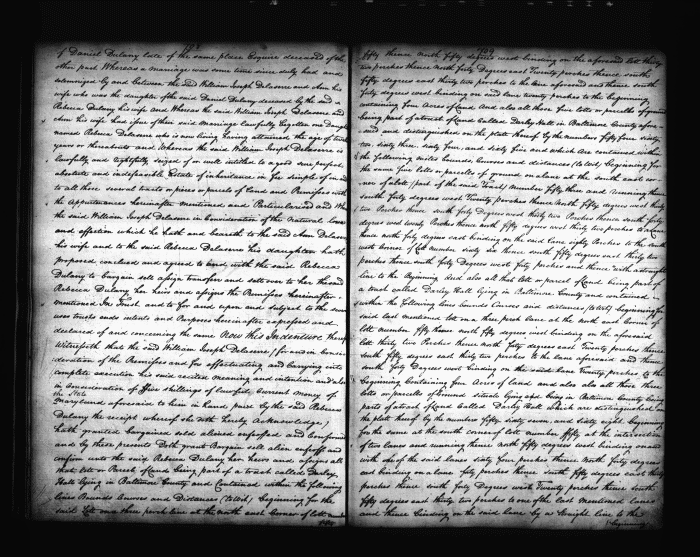 of Daniel Dulany late of the same place Esquire deceased of the
other part Whereas a marriage was some time since duly had and
solemnized by and between the said William Joseph Delasere and Ann his
wife who was the daughter of the said Daniel Dulany deceased by the said
Rebecca Dulany his wife And Whereas the said William Joseph Delasere and
Ann his wife had issue of their said Marriage lawfully begotten one Daughter
named Rebecca Delasere who is now living having attained the age of twelve
years or thereabout and Whereas the said William Joseph Delasere is
lawfully and rightfully seized of or well intitled to a good sure perfect
absolute and indefeasible Estate of inheritance in fee simple of and in
to all those several tracts or pieces or parcels of Land and Premises with
the Appurtenances hereinafter mentioned and Particularized and Whereas
the said William Joseph Delasere in Consideration of the Natural love
and affection which he hath and beareth to the said Ann Delasere
his wife and to the said Rebecca Delasere his daughter hath
proposed concluded and agreed to and with the said Rebecca
Dulany to bargain sell assign transfer and sett over to her the said
Rebecca Dulany her heirs and assigns the Premises hereinafter
mentioned In Trust and to for and upon and subject to the several
uses trusts ends intents and Purposes herein after expressed and
declared of and concerning the same Now this Indenture
Witnesseth that the said William Joseph Delasere for and in Consi
deration of the Premises and for effectuating and carrying into
complete execution his said recited meaning and intention and also
in Consideration of Five shillings of lawful Current money of
the State
Maryland aforesaid to him in hand paid by the said Rebecca
Dulany the receipt whereof he doth hereby Acknowledge
hath granted bargained sold aliened enfeoffed and Confirmed
and by these presents Doth grant Bargain sell alien enfeoff and
confirm unto the said Rebecca Dulany her heirs and assigns all
that lott or Parcel of Land being part of a tract called Darley
Hall lying in Baltimore County and Contained within the following
lines Bounds Courses and Distances (to Wit) Beginning for the
said Lott on a three perch lane at the north east Corner of lott number
fifty thence North fifty degrees west binding on the aforesaid lott thirty
two perches thence north forty Degrees east Twenty perches thence south
fifty degrees east thirty two perches to the lane aforesaid and thence south
forty degrees west binding on said lane twenty perches to the beginning
containing four Acres of Land And also all those five lotts or parcells of ground
being part of a tract of Land Called Darley Hall in Baltimore County afore
said and distinguished on the platt thereof by the numbers fifty four sixty
two sixty three, sixty four, and sixty five and which are contained within
the following metes bounds, Courses and distances (to Wit) Beginning for
the same five lotts or parcells of ground on a lane at the south east cor
ner of a lott (part of the said Tract) number fifty three and running thence
south forty degrees west Twenty perches thence North fifty degrees west thirty
two Perches thence south forty Degrees west thirty two Perches thence south forty
degrees west Perches thence north fifty degrees west thirty two perches to a lane
thence north forty degrees east binding on the said lane eighty Perches to the north
west corner of Lott number sixty six thence south fifty degrees east thirty two
perches thence south forty Degrees west forty perches and thence with a straight
line to the Beginning And also all that lott or parcel of Land being part of
a tract called Darley Hall lying in Baltimore County and contained
within the following lines bounds Courses and distances (to Wit) beginning for
said last mentioned lott on a three perch lane at the north east corner of
lott number fifty thence north fifty degrees west binding on the aforesaid
lott thirty two Perches thence North forty degrees east Twenty perches thence
south fifty degrees east thirty two perches to the lane aforesaid and thence
south forty Degrees west binding on the said lane Twenty perches to the
Beginning Containing four Acres of Land and also all those three
lotts or parcells of Ground situate lying and being in Baltimore County being
parts of a tract of Land Called Darley Hall which are distinguished on
the platt thereof by the numbers fifty sixty seven and sixty eight Beginning
for the same at the south east corner of lott number fifty at the intersection
of two lanes and running thence north fifty degrees west binding on and
with one of the said lanes sixty four perches thence North forty degrees
east binding on a lane forty perches thence south fifty degrees east thirty
perches thence South forty Degrees west Twenty Perches thence south
fifty degrees east thirty two perches to one of the last mentioned lanes
and thence binding on the said lane by a straight line to the
beginning